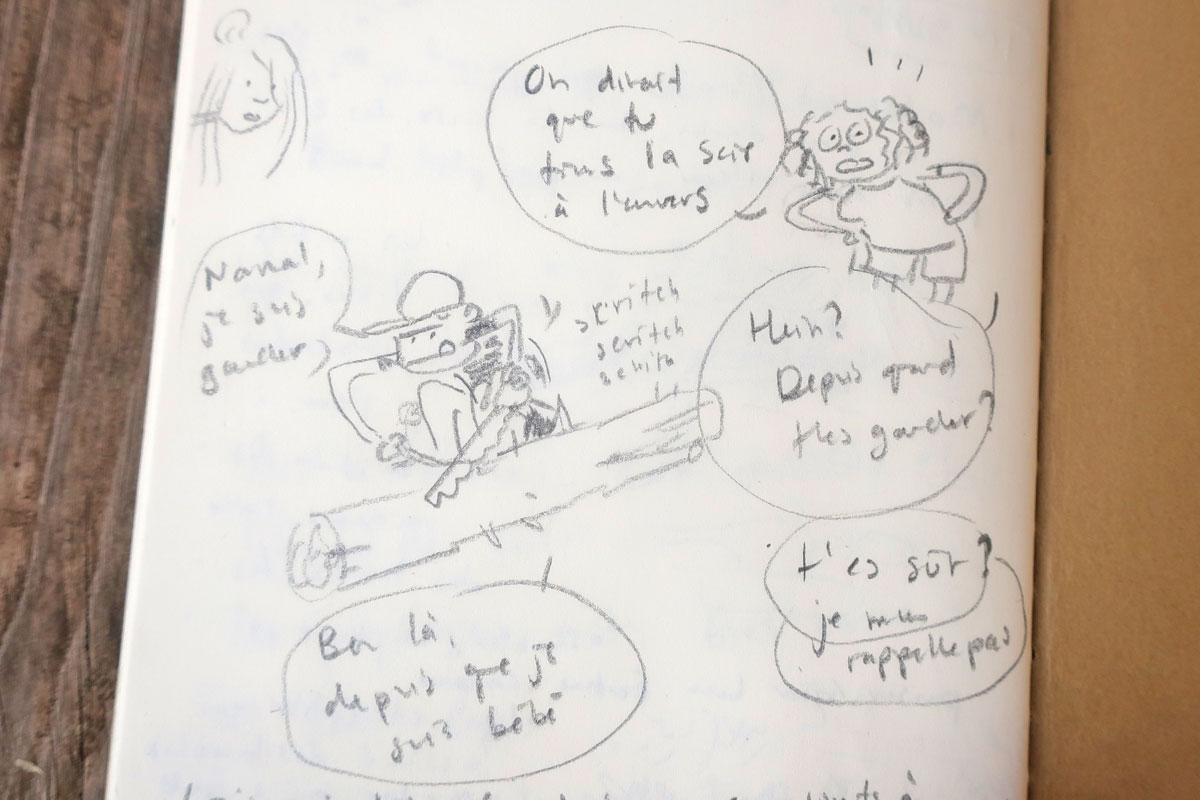 On dirait
que tu
tiens la scie
à l'envers
Nanal,
je suis
gaucher
scritch
scritch
scritch
Hein?
Depuis quand
t'es gaucher?
Ben là,
depuis que je
suis bébé
t'es sûr?
je
rappelle pas
à